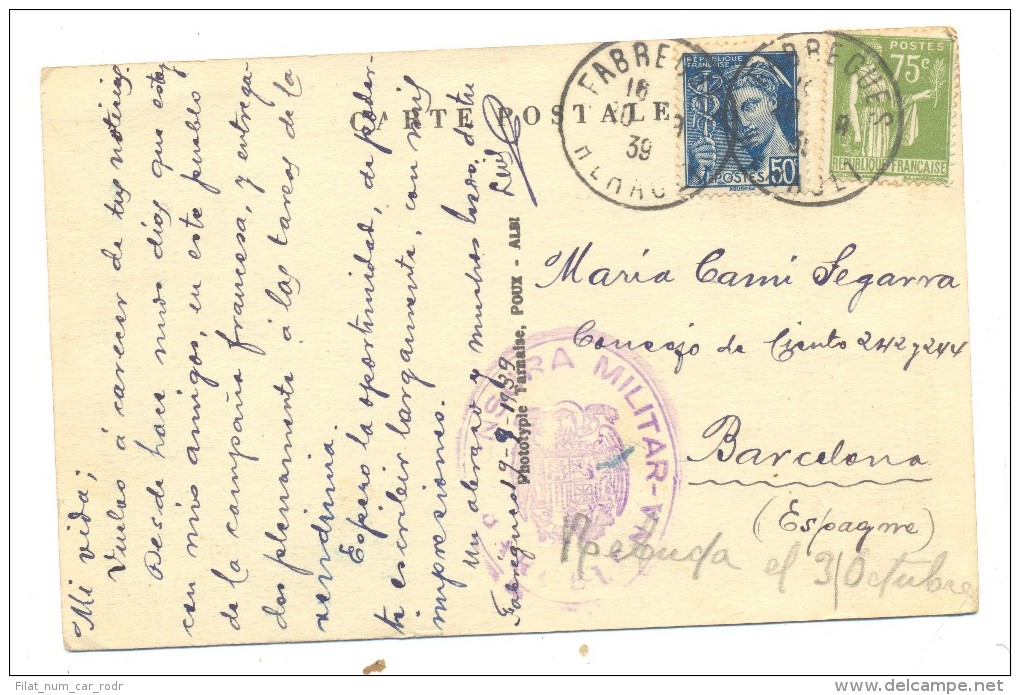 CARTE POSTALE
Mi vida;
Vuelvo á carecer de tus noticias.
Desde hace unos dias que estoy
con unos amigos, en este pueblo
de la campaña francesa, y entrega-
dos plenamente á las tareas de la
vendimia.
Espero la oportunidad, de poder-
te escribir largamente, con mis
impresiones.
Un abrazo y muchos besos, de tu
Luis
Fabregues 19-9-1939
Phototypie Tarnaise, POUX - ALBI
FABREGUES
16
39
HERAULT
RÉPUBLIQUE
FRANÇAISE
POSTES
50
FABREGUES
39
HERAULT
POSTES
75c
REPUBLIQUE FRANÇAISE
Maria Cami Segarra
Consejo de Ciento 242 y 244
Barcelona
(Espagne)
CENSURA MILITAR
el 3/Octubre
Filat_num_car_rodr
www.delcampe.net